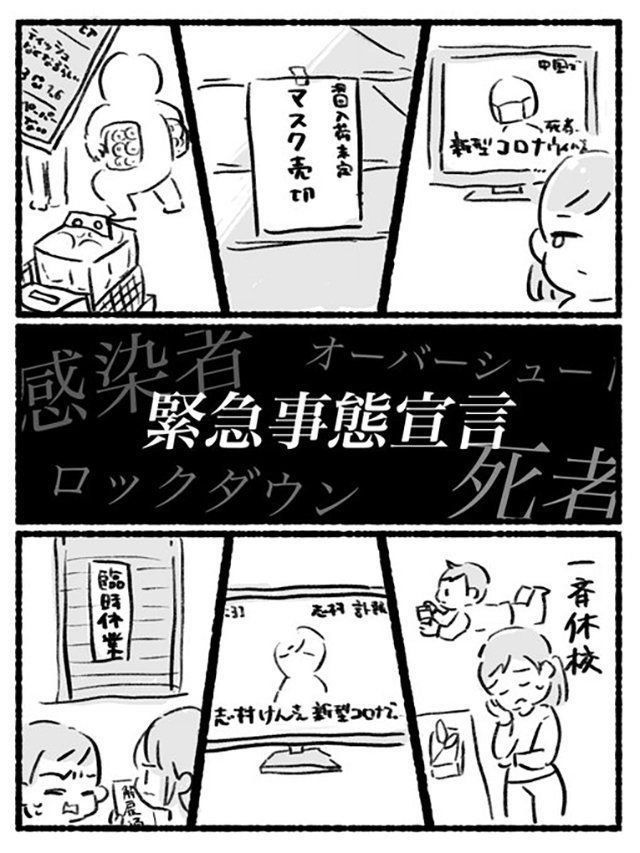 中国で
死者
新型コロナウイルス
入荷未定
マスク売切
ティッシュ
ペーパー
感染者
オーバーシュート
緊急事態宣言
ロックダウン
死者
一斉休校
志村 訃報
志村けんさん 新型コロナで
臨時休業
解雇通